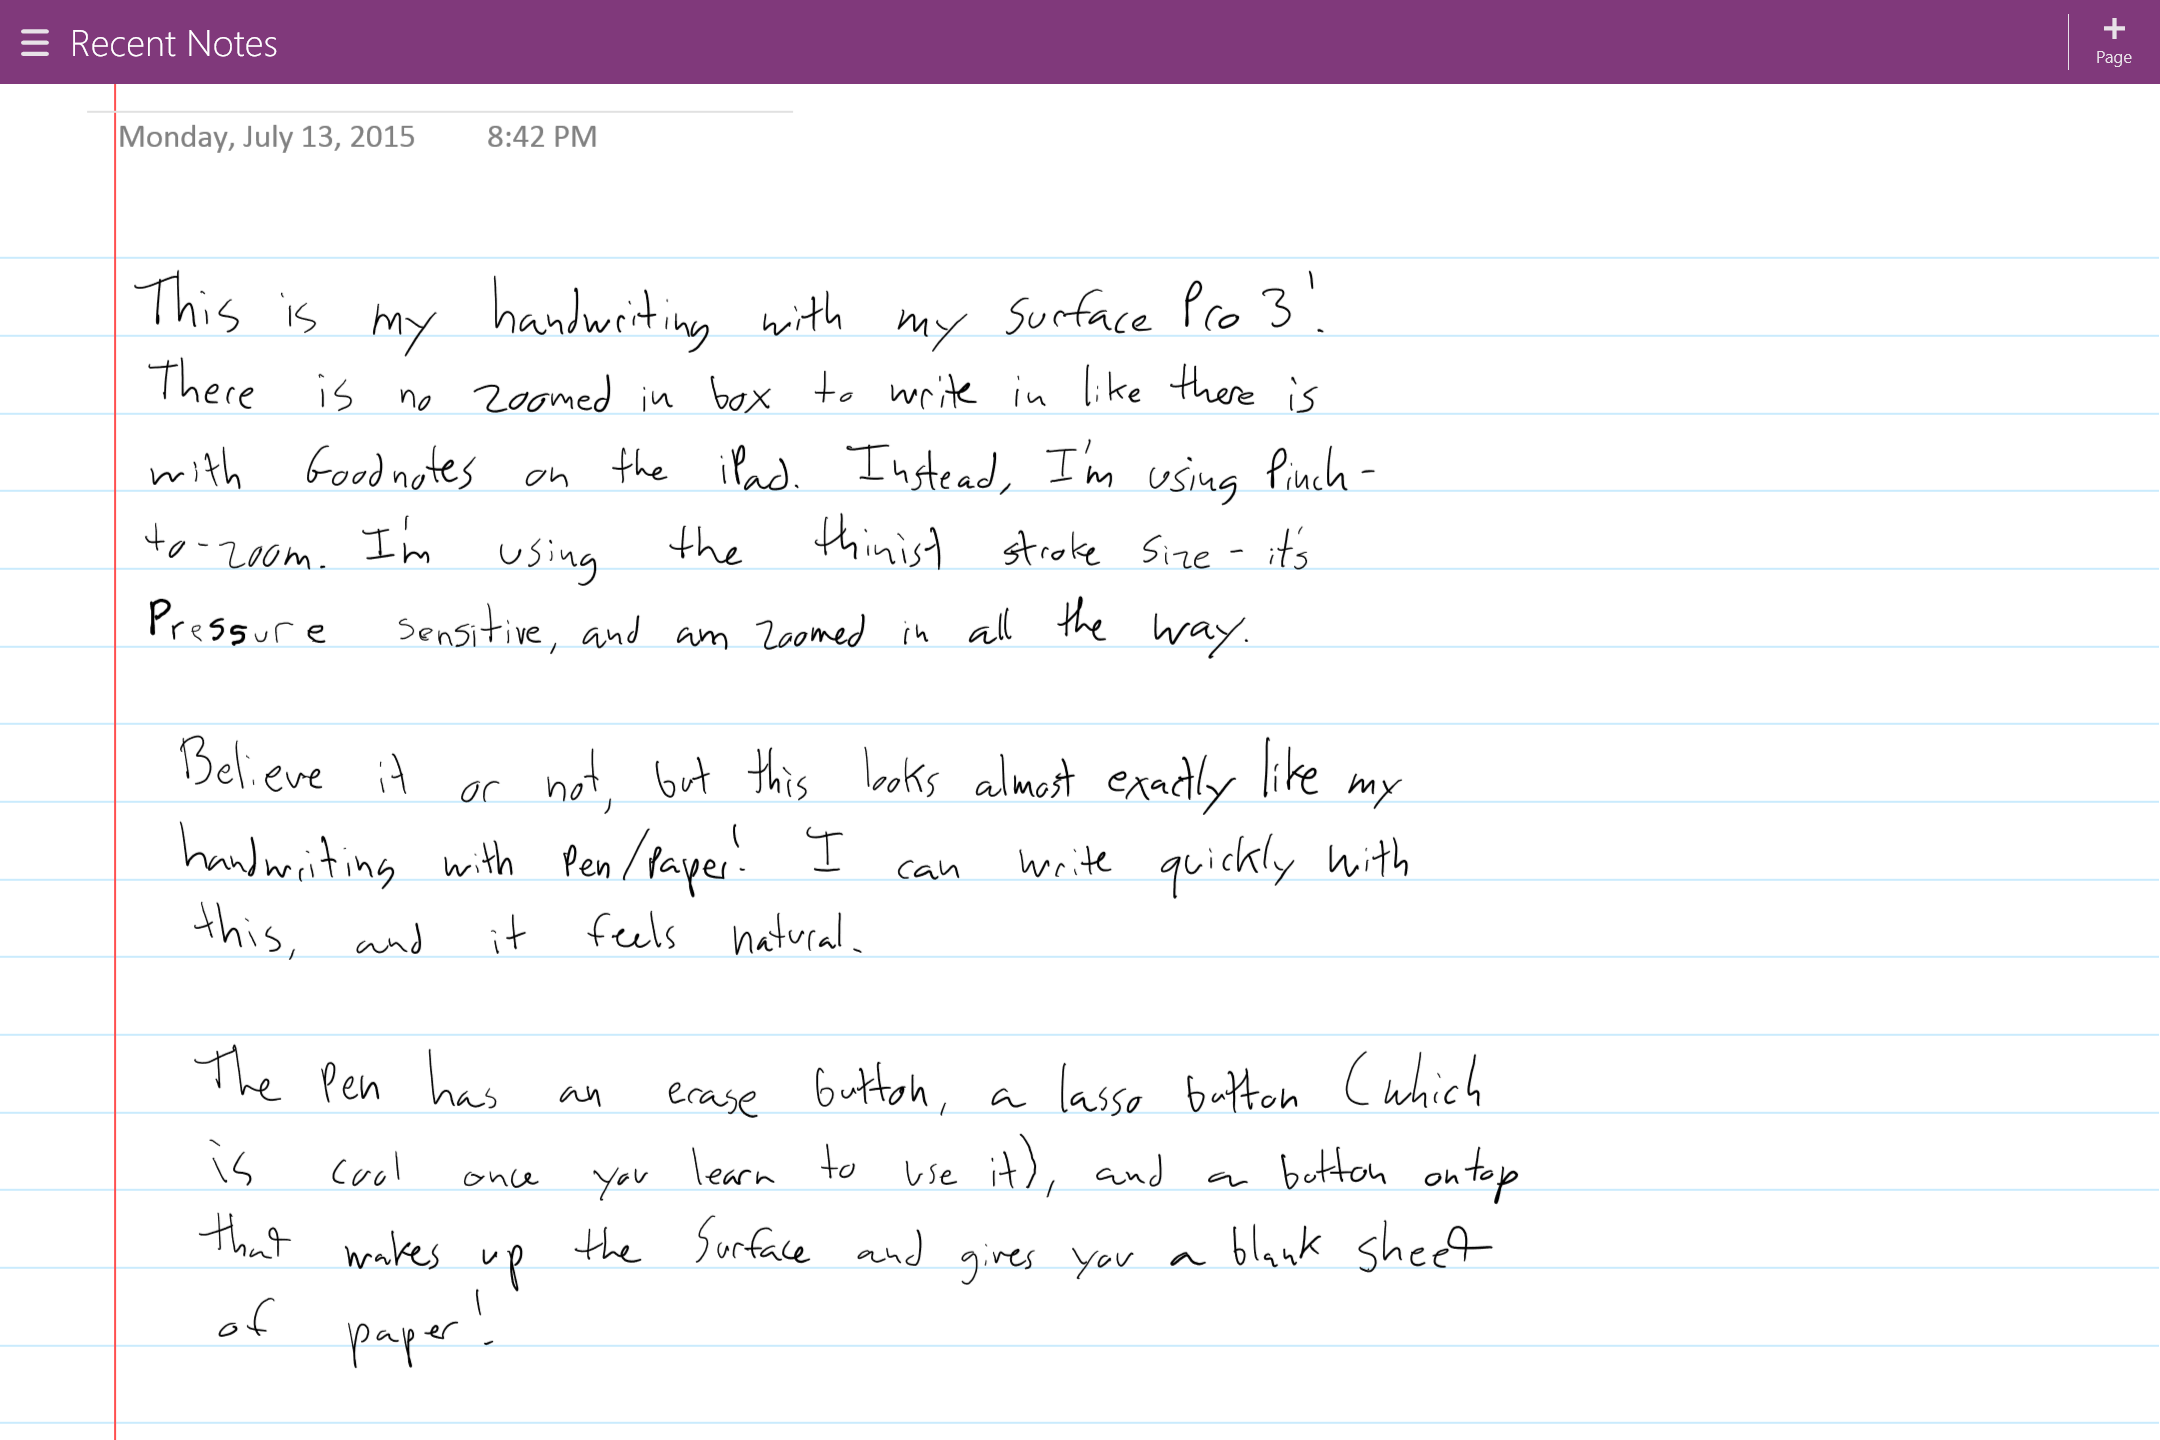 Recent Notes
+
Page
Monday, July 13, 2015 8:42 PM
This is my handwriting with my Surface Pro 3!
There is no zoomed in box to write in like there is
with Goodnotes on the iPad. Instead, I'm using Pinch-
to-zoom. I'm using the thinist stroke size - it's
Pressure sensitive, and am zoomed in all the way.
Believe it or not, but this looks almost exactly like my
handwriting with Pen/Paper! I can write quickly with
this, and it feels natural.
The Pen has an erase button, a lasso button (which
is cool once you learn to use it), and a button on top
that wakes up the Surface and gives you a blank sheet
of paper!